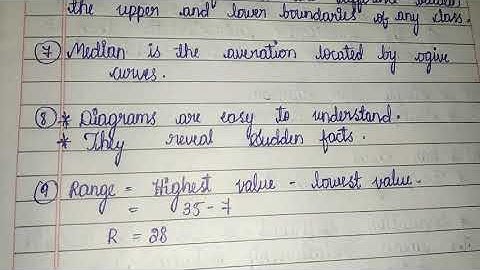 the upper and lower boundaries of any class.
(7) Median is the averation located by ogive
curves.
(8) * Diagrams are easy to understand.
* They reveal sudden facts.
(9) Range = Highest value - lowest value.
= 35 - 7
R = 28